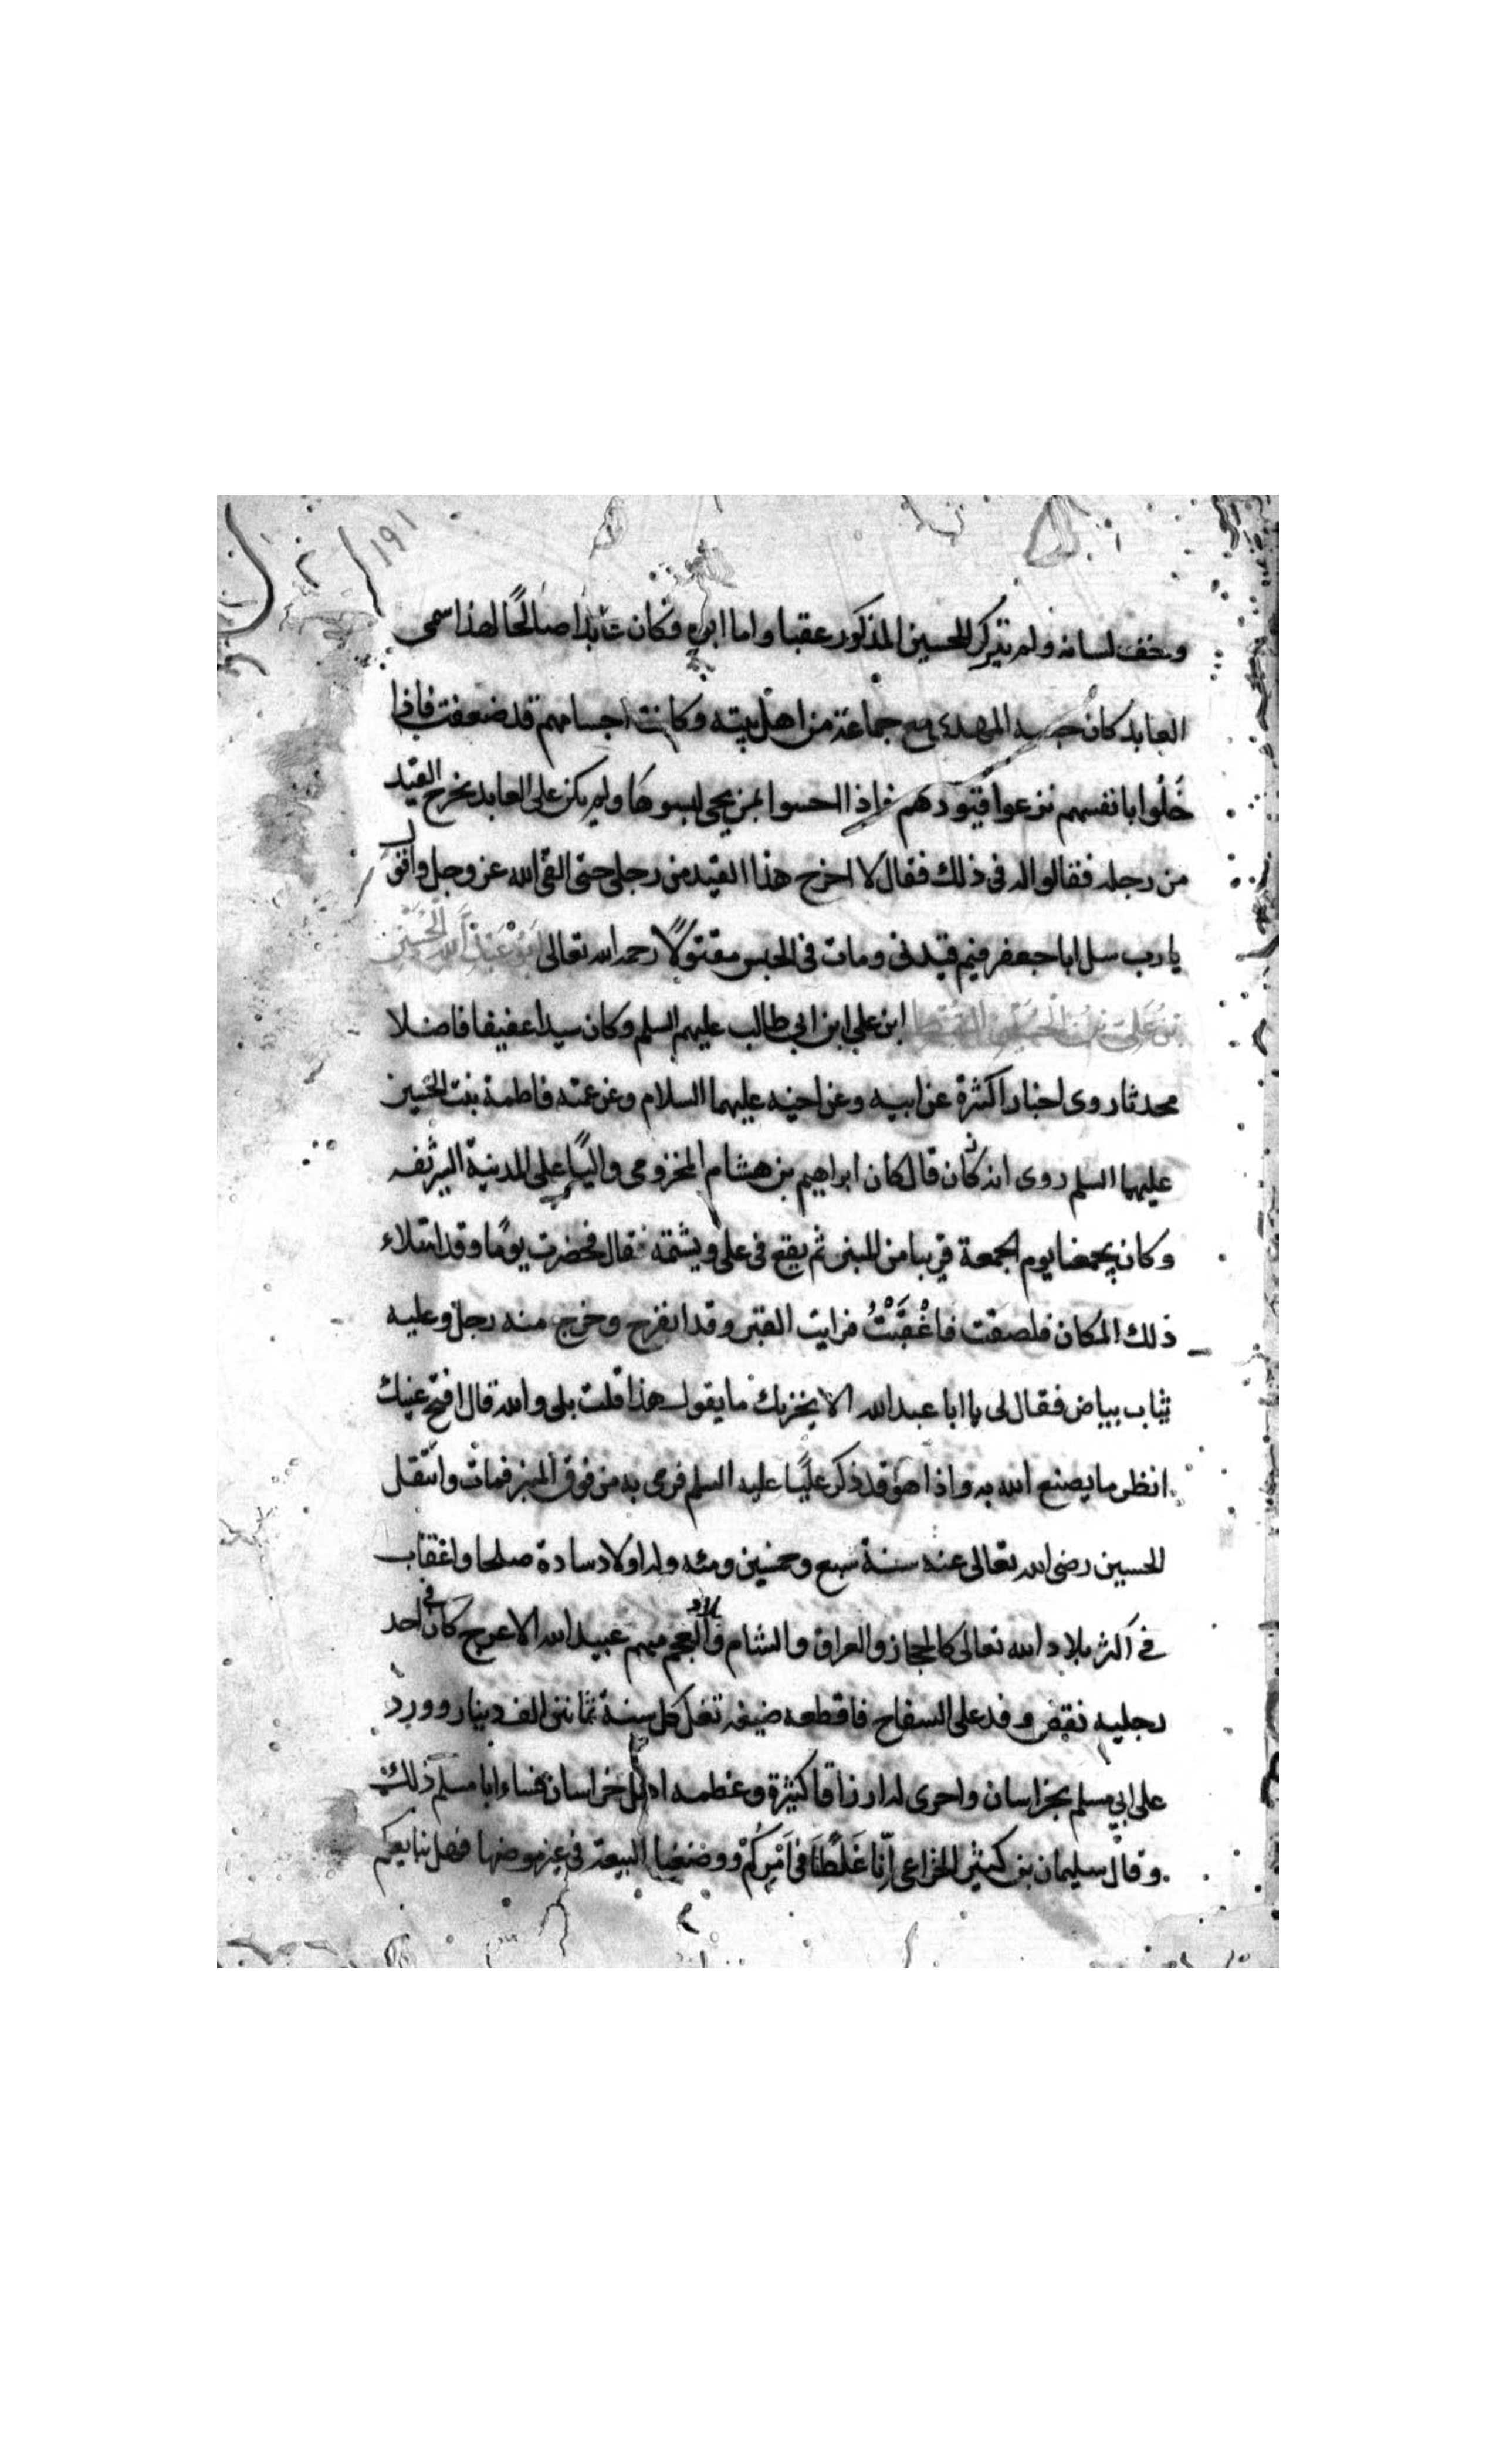 ١٩١
وخفف لسانه ولم يترك للحسين المذكور عقبا واما ابوه فكان عابدا صالحًا لهذا سمى
العابد كان حبسه المهدى مع جماعة من اهل بيته وكانت اجسامهم قد ضعفت فاذا
خَلُوا بانفسهم نزعوا قيودهم فاذا احسوا بمن يجى لبسوها ولم يكن على العابد يخرج القيد
من رجله فقالوا له فى ذلك فقال لا اخرج هذا القيد من رجلى حتى القى الله عز وجل واقول
يا رب سل ابا جعفر فيم قيدنى ومات فى الحبس مقتولًا رحمه الله تعالى ابو عبد الله الحسين
بن على بن الحسين ابن على ابن ابى طالب عليهم السلم وكان سيدا عفيفا فاضلا
محدثا روى اخبارا كثيرة عن ابيه وعن اخيه عليهما السلام وعن عمته فاطمة بنت الحسين
عليهما السلم روى انه كان قال كان ابراهيم بن هشام المخزومى واليًا على المدينة الشريفه
وكان يجمعنا يوم الجمعة قريبا من المنبر ثم يقع فى على ويشتمه فقال فحضرت يومًا وقد امتلاء
ذلك المكان فلصقت فَاغْفَيْتُ فرايت القبر وقد انفرج وخرج منه رجل وعليه
ثياب بياض فقال لى يا ابا عبد الله الا يحزنك ما يقول هذا قلت بلى والله قال افتح عينك
انظر ما يصنع الله به واذا هو قد ذكر عليًا عليه السلم فرمى به من فوق المنبر فمات وانتقل
الحسين رضى الله تعالى عنه سنة سبع وخمسين ومئه وله اولاد سادة صلحا واعقاب
فى اكثر بلاد الله تعالى كالحجاز والعراق والشام وبلاد العجم منهم عبيد الله الاعرج كان فى احد
رجليه نقص وفد على السفاح فاقطعه ضيعة تغل كل سنة ثمانين الف دينار وورد
على ابى مسلم بخراسان واجرى له ارزاقا كثيرة وعظمه اهل خراسان فساء ابا مسلم ذلك
وقال سليمان بن كثير الخزاعى اِنّا غَلَطْنَا فى اَمْرِكُمْ ووضعنا البيعة فى غير موضعها فهل نبايعكم